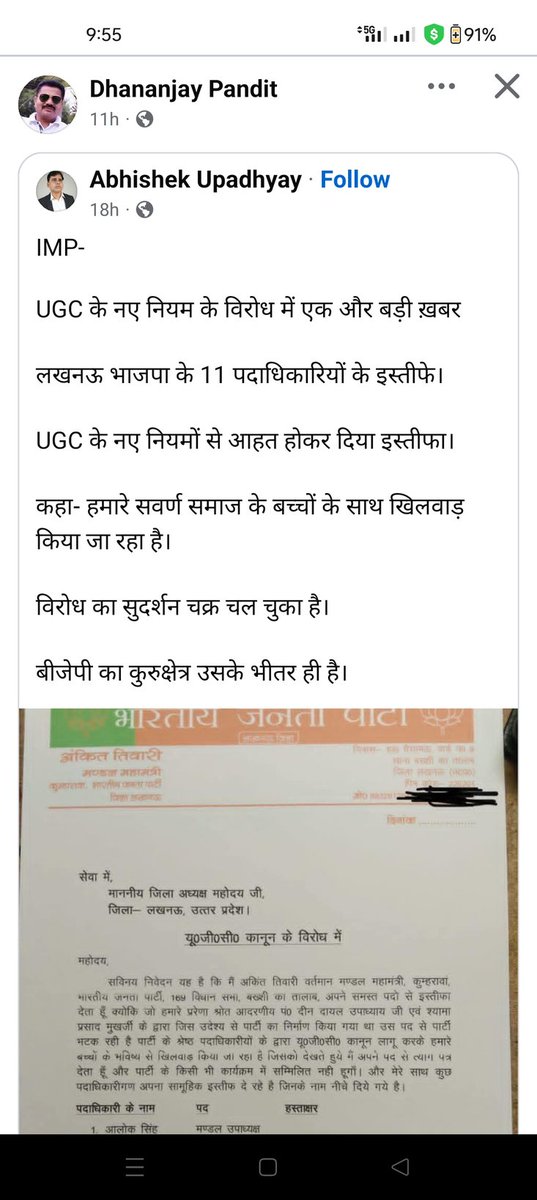 9:55
5G
91%
Dhananjay Pandit
11h ·
Abhishek Upadhyay · Follow
18h ·
IMP-
UGC के नए नियम के विरोध में एक और बड़ी ख़बर
लखनऊ भाजपा के 11 पदाधिकारियों के इस्तीफे।
UGC के नए नियमों से आहत होकर दिया इस्तीफा।
कहा- हमारे सवर्ण समाज के बच्चों के साथ खिलवाड़
किया जा रहा है।
विरोध का सुदर्शन चक्र चल चुका है।
बीजेपी का कुरुक्षेत्र उसके भीतर ही है।
भारतीय जनता पार्टी
अंकित तिवारी
मण्डल महामंत्री
भारतीय जनता पार्टी
जिला लखनऊ
दिनांक
सेवा में,
माननीय जिला अध्यक्ष महोदय जी,
जिला– लखनऊ, उत्तर प्रदेश।
यू0जी0सी0 कानून के विरोध में
महोदय,
सविनय निवेदन यह है कि मैं अंकित तिवारी वर्तमान मण्डल महामंत्री, कुम्हरावा,
भारतीय जनता पार्टी, 169 विधान सभा, बख्शी का तालाब, अपने समस्त पदो से इस्तीफा
देता हूँ क्योकि जो हमारे प्ररेणा श्रोत आदरणीय पं0 दीन दयाल उपाध्याय जी एवं श्यामा
प्रसाद मुखर्जी के द्वारा जिस उदेश्य से पार्टी का निर्माण किया गया था उस पद से पार्टी
भटक रही है पार्टी के श्रेष्ठ पदाधिकारीयों के द्वारा यू0जी0सी0 कानून लागू करके हमारे
बच्चों के भविष्य से खिलवाड़ किया जा रहा है जिसको देखते हुये में अपने पद से त्याग पत्र
देता हूँ और पार्टी के किसी भी कार्यक्रम में सम्मिलित नही हूगाँ। और मेरे साथ कुछ
पदाधिकारीगण अपना सामूहिक इस्तीफ दे रहे है जिनके नाम नीचे दिये गये है।
पदाधिकारी के नाम पद हस्ताक्षर
1. आलोक सिंह मण्डल उपाध्यक्ष